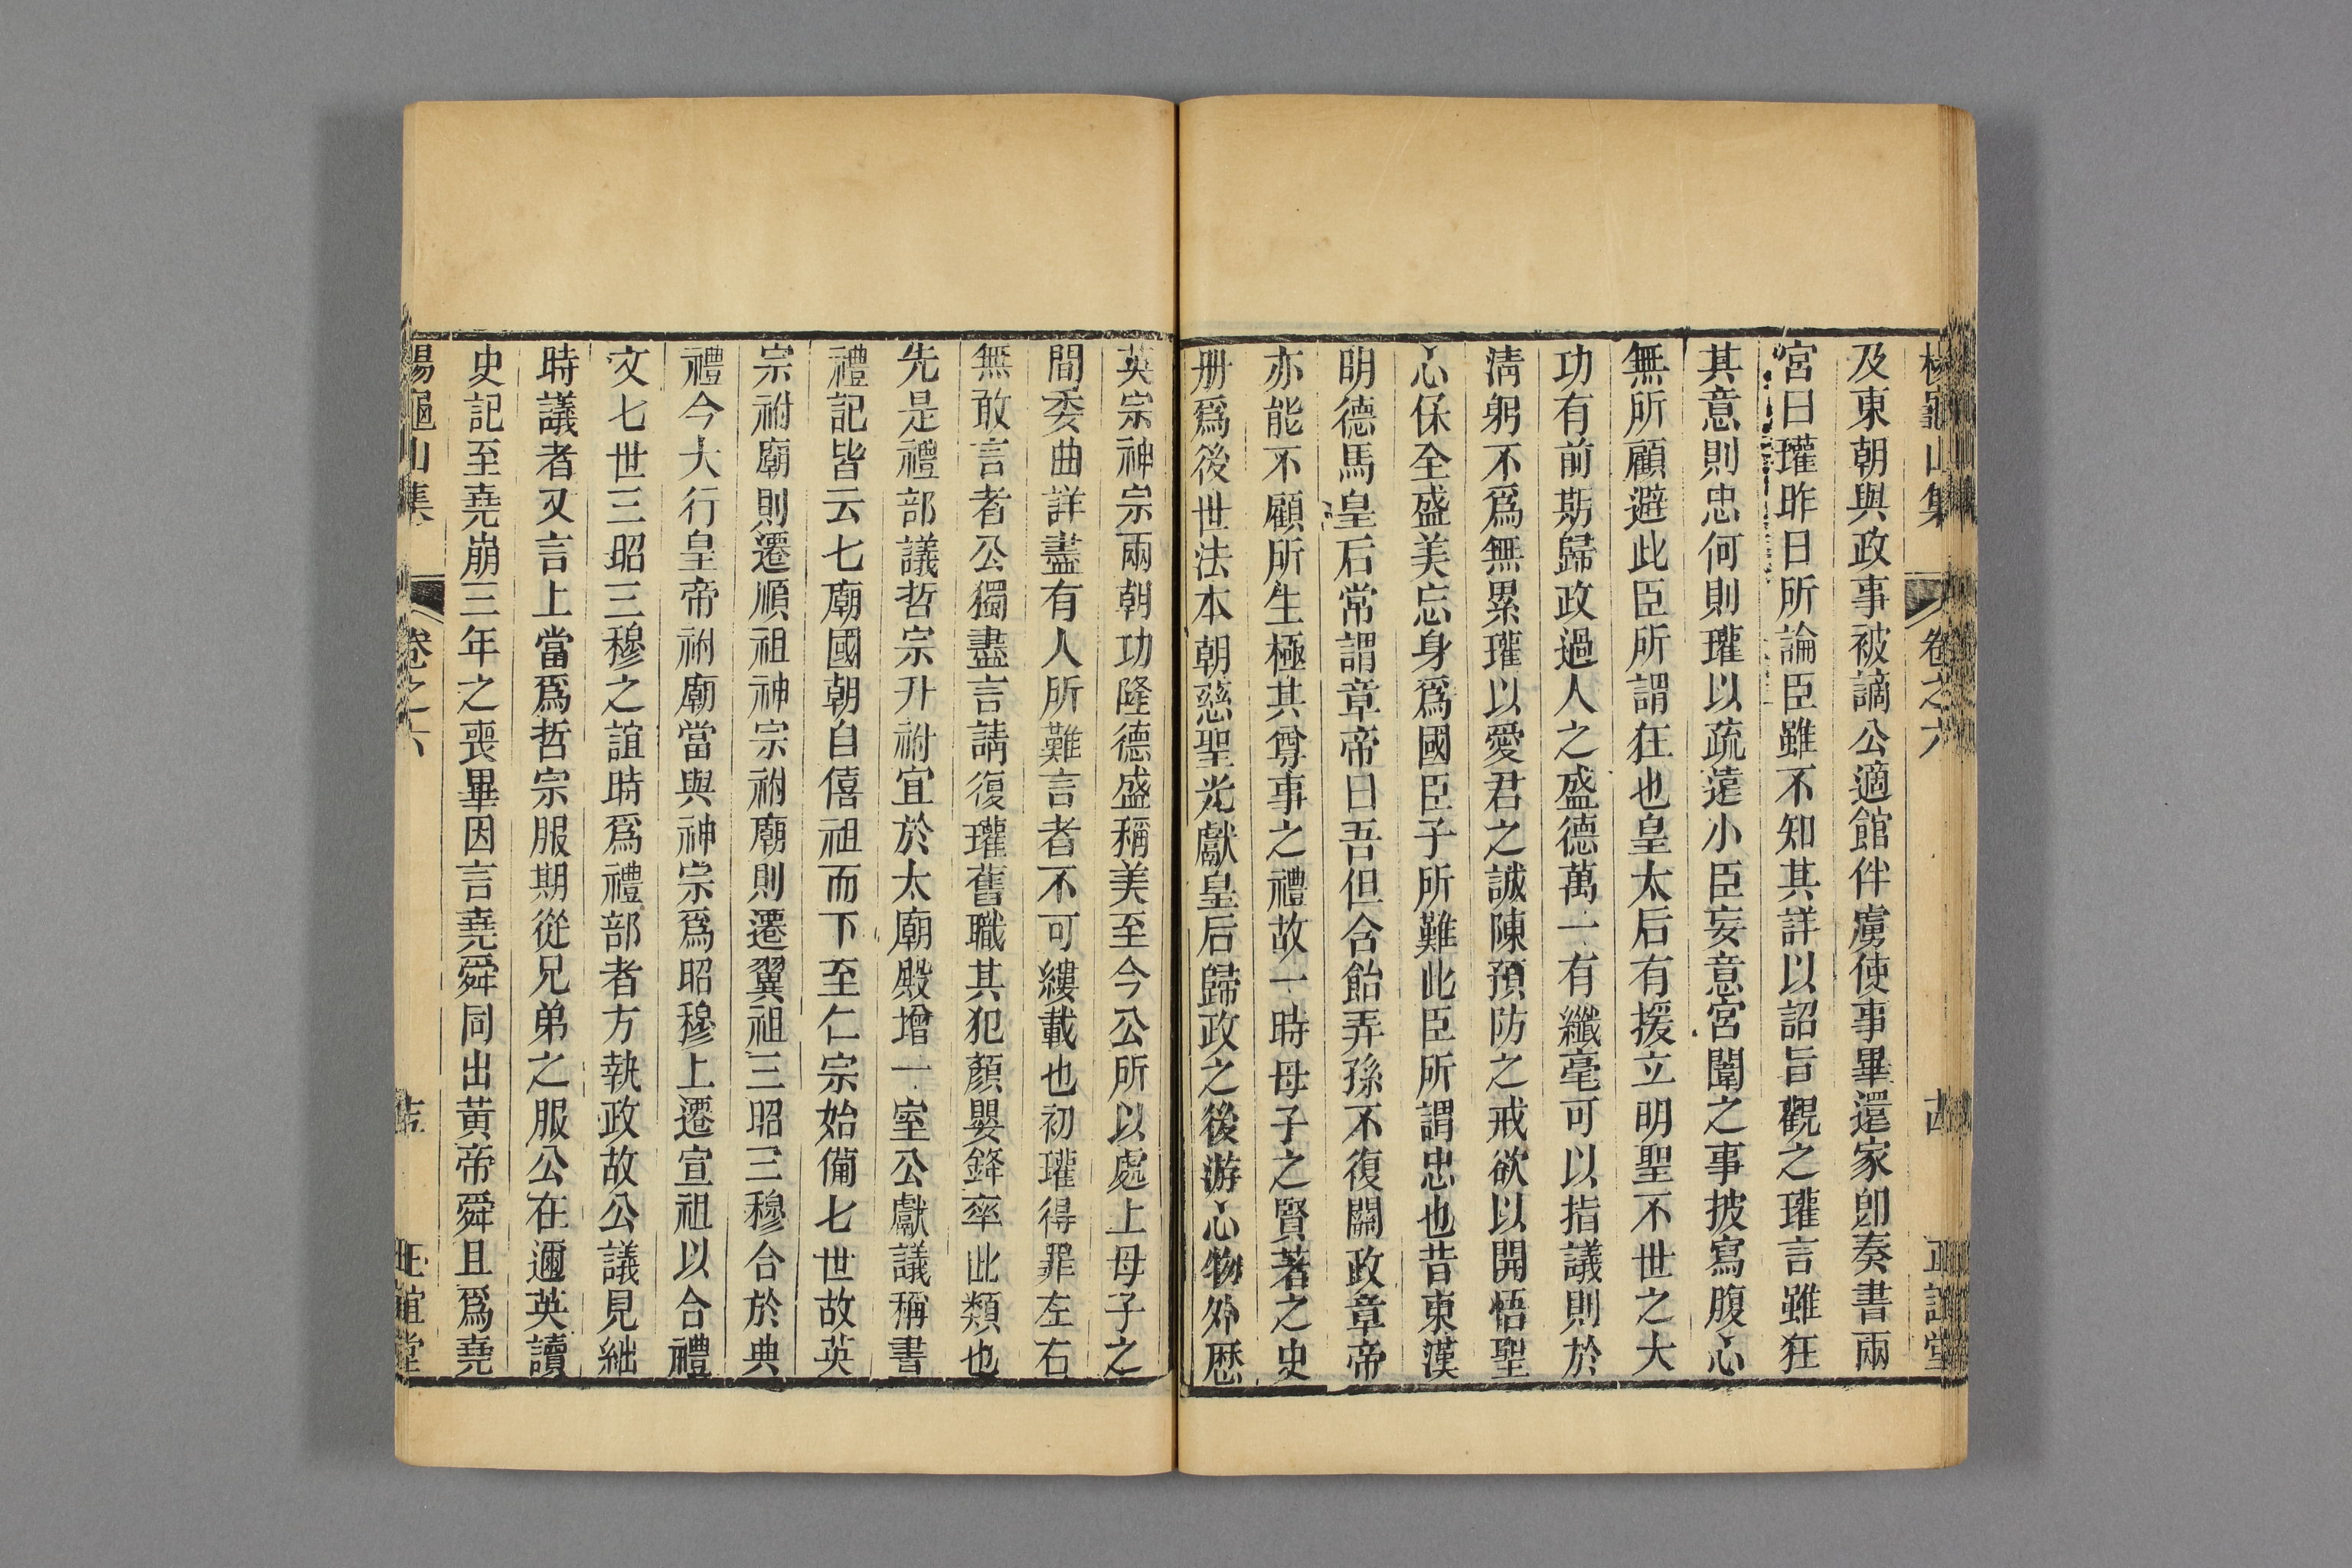 楊龜山集 卷之六 古 正誼堂
及東朝與政事被謫公適館伴虜使事畢還家卽奏書兩
宮曰瓘昨日所論臣雖不知其詳以詔旨觀之瓘言雖狂
其意則忠何則瓘以疏遠小臣妄意宮闈之事披寫腹心
無所顧避此臣所謂狂也皇太后有援立明聖不世之大
功有前期歸政過人之盛德萬一有纖毫可以指議則於
淸躬不爲無累瓘以愛君之誠陳預防之戒欲以開悟聖
心保全盛美忘身爲國臣子所難此臣所謂忠也昔東漢
明德馬皇后常謂章帝曰吾但含飴弄孫不復關政章帝
亦能不顧所生極其尊事之禮故一時母子之賢著之史
册爲後世法本朝慈聖光獻皇后歸政之後游心物外歷
英宗神宗兩朝功隆德盛稱美至今公所以處上母子之
間委曲詳盡有人所難言者不可縷載也初瓘得罪左右
無敢言者公獨盡言請復瓘舊職其犯顏嬰鋒率此類也
先是禮部議哲宗升祔宜於太廟殿增一室公獻議稱書
禮記皆云七廟國朝自僖祖而下至仁宗始備七世故英
宗祔廟則遷順祖神宗祔廟則遷翼祖三昭三穆合於典
禮今大行皇帝祔廟當與神宗爲昭穆上遷宣祖以合禮
文七世三昭三穆之誼時爲禮部者方執政故公議見絀
時議者又言上當爲哲宗服期從兄弟之服公在邇英讀
史記至堯崩三年之喪畢因言堯舜同出黃帝舜且爲堯
楊龜山集 卷之六 正誼堂